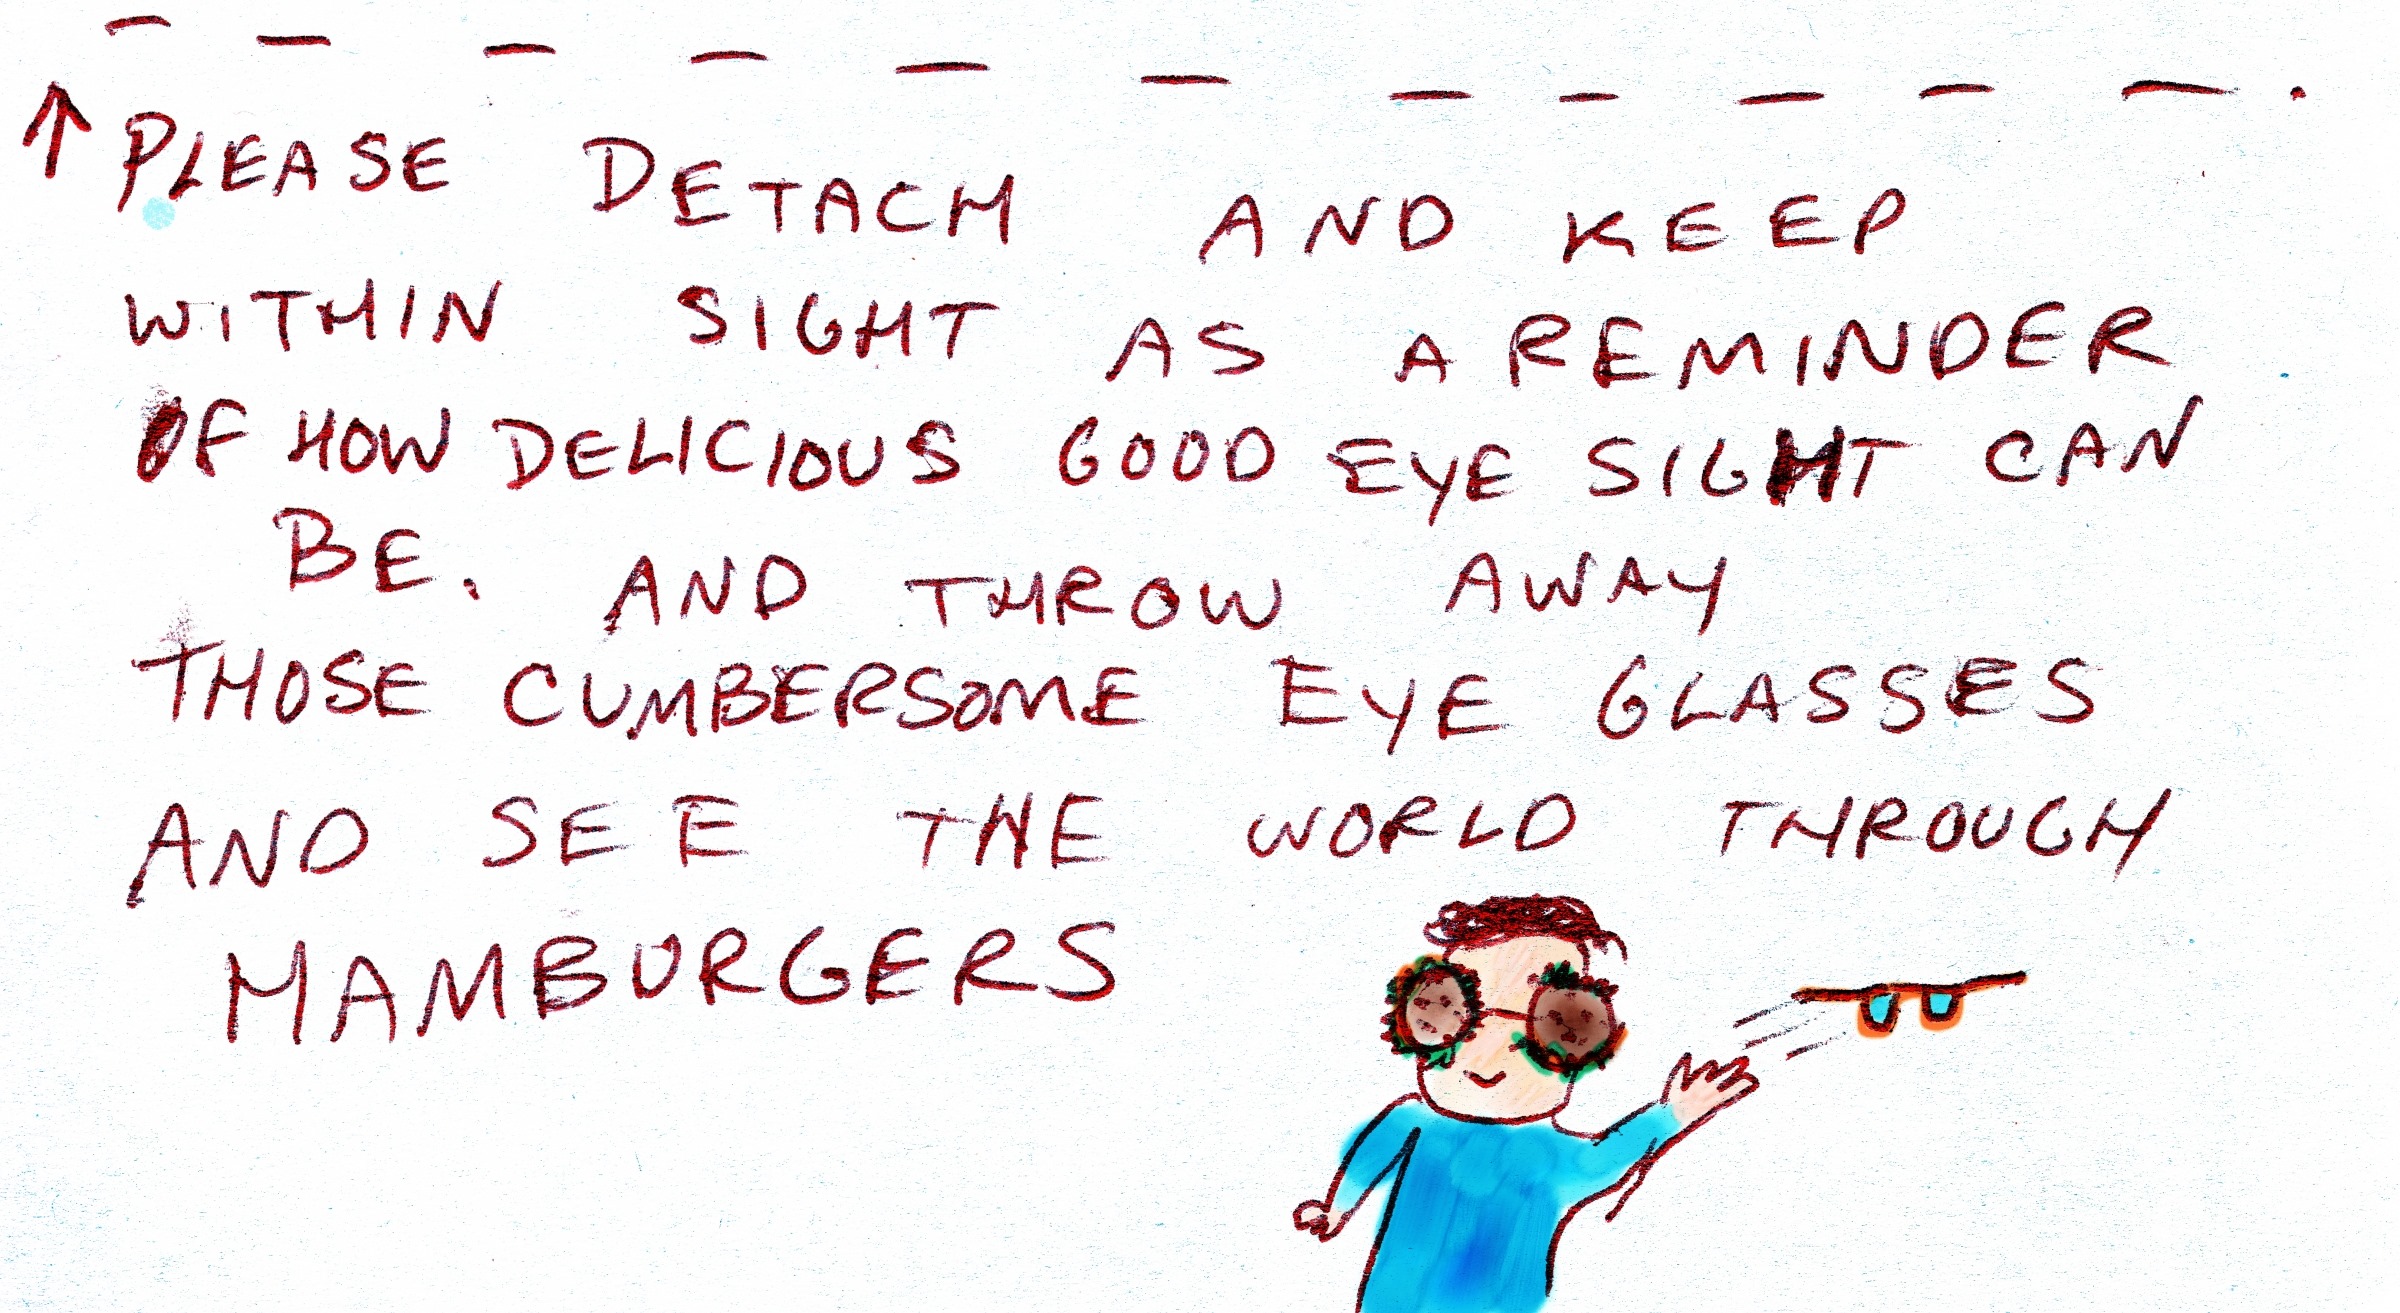 PLEASE DETACH AND KEEP
WITHIN SIGHT AS A REMINDER
OF HOW DELICIOUS GOOD EYE SIGHT CAN
BE. AND THROW AWAY
THOSE CUMBERSOME EYE GLASSES
AND SEE THE WORLD THROUGH
HAMBURGERS